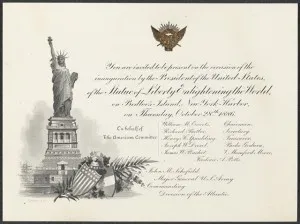 You are invited to be present on the occasion of the
inauguration by the President of the United States,
of the Statue of Liberty Enlightening the World,
on Bedloe's Island, New York Harbor,
on Thursday, October 28th 1886.
On behalf of
The American Committee
William M. Evarts, Chairman
Richard Butler, Secretary
Henry F. Spaulding, Treasurer
Joseph W. Drexel, Parke Godwin,
James W. Pinchot, V. Mumford Moore,
Frederic A. Potts.
John M. Schofield
Major General U.S. Army
Commanding
Division of the Atlantic